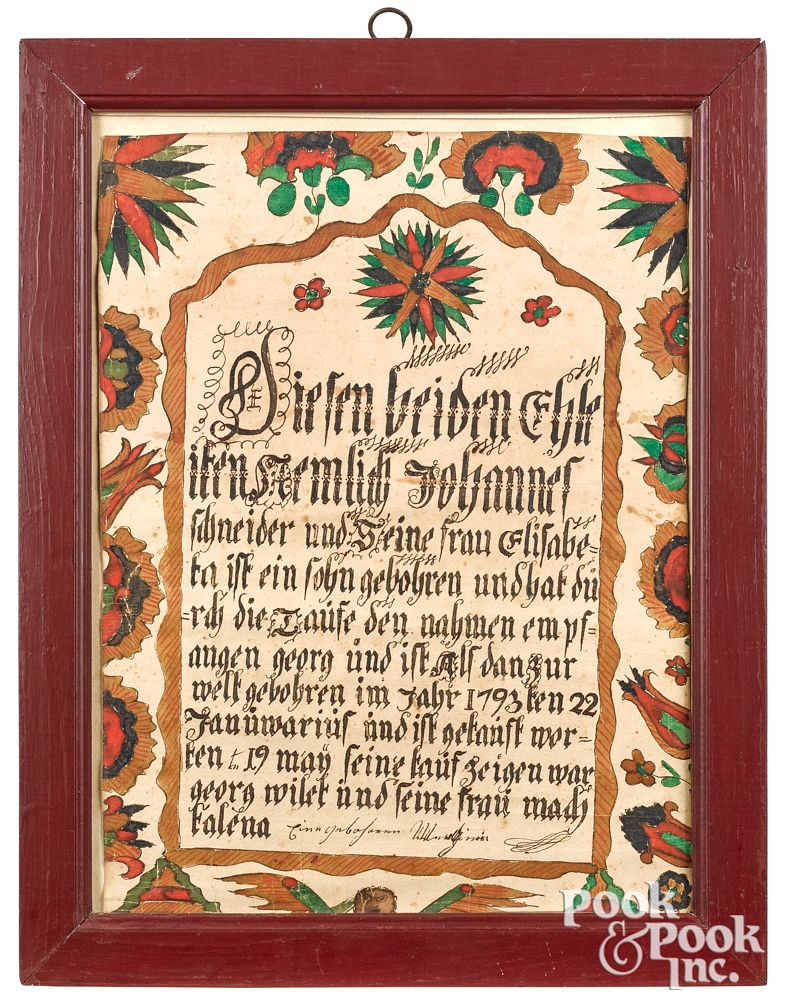 Diesen beiden Ehle
iten Nemlich Johannes
schneider und Seine frau Elisabe=
ta ist ein sohn gebohren und hat dü
=rch die Taufe den nahmen empf=
angen georg ünd ist Als dan Zur
welt gebohren im Jahr 1793 ten 22
Janüwariüs ünd ist getauft wor=
ten t. 19 maÿ seine tauf zeigen war
georg wilet ünd seine frau mach
talena Eine gebohrene
Pook
& Pook
Inc.